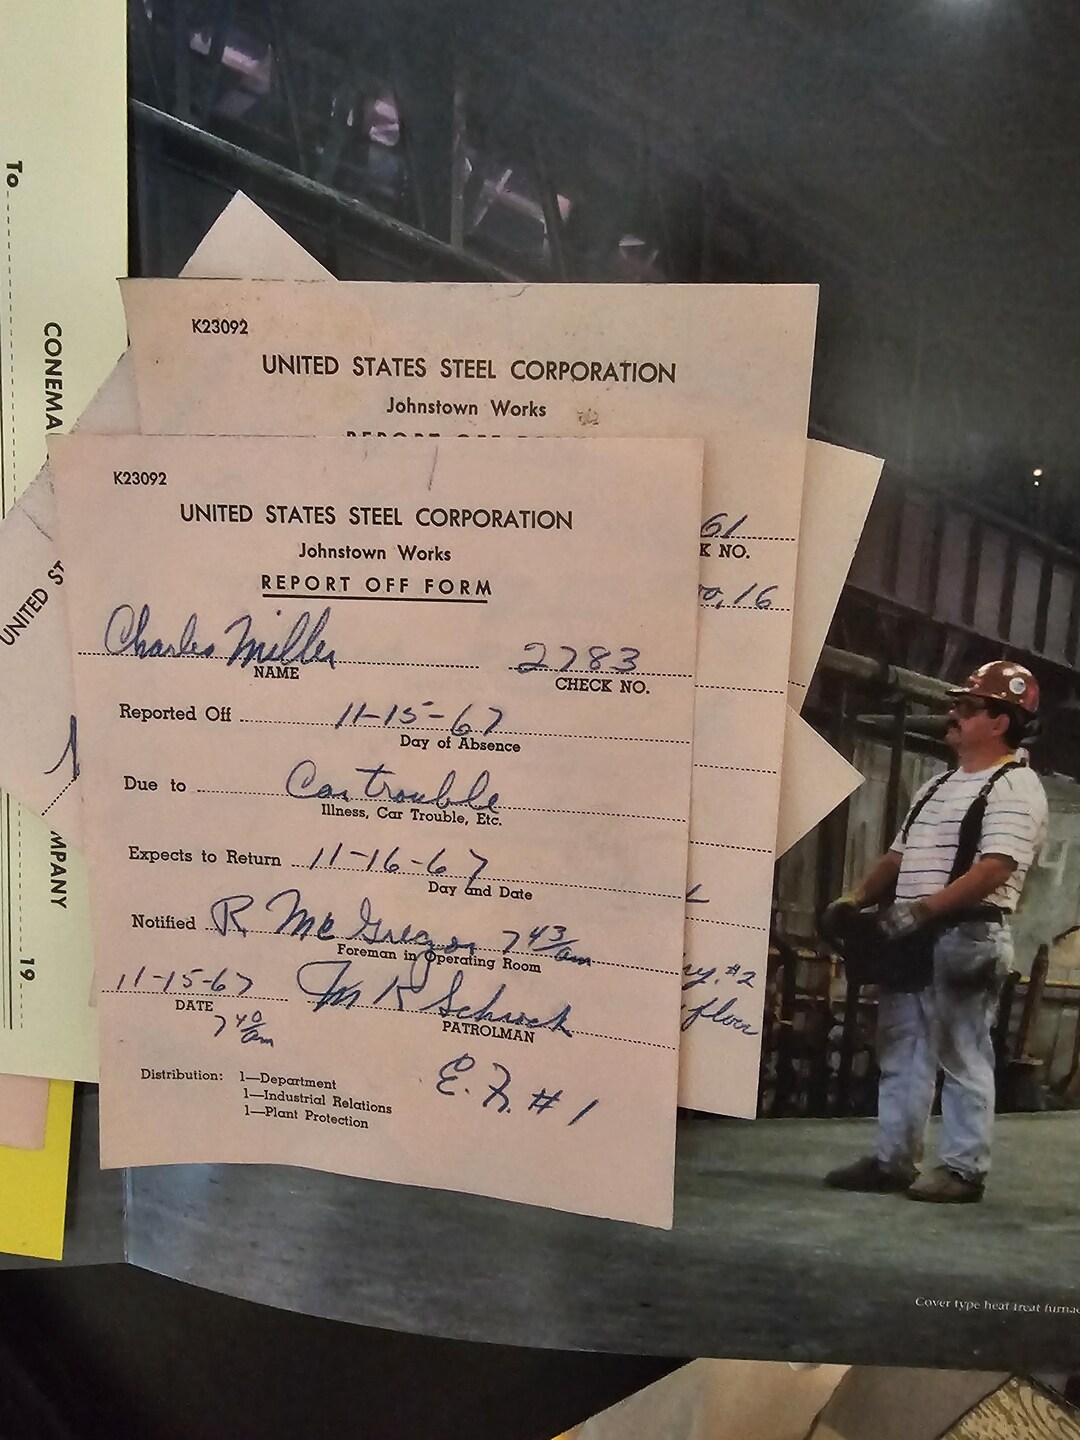 To
CONEMA
MPANY
19
UNITED ST
K23092
UNITED STATES STEEL CORPORATION
Johnstown Works
REPORT OFF
61
K NO.
16
#2
floor
K23092
UNITED STATES STEEL CORPORATION
Johnstown Works
REPORT OFF FORM
Charles Miller 2783
NAME CHECK NO.
Reported Off 11-15-67
Day of Absence
Due to Car trouble
Illness, Car Trouble, Etc.
Expects to Return 11-16-67
Day and Date
Notified R McGregor 7 43/am
Foreman in Operating Room
11-15-67 M R Schrock
DATE PATROLMAN
7 40/am
E. F. #1
Distribution: 1—Department
1—Industrial Relations
1—Plant Protection
Cover type heat treat furnac